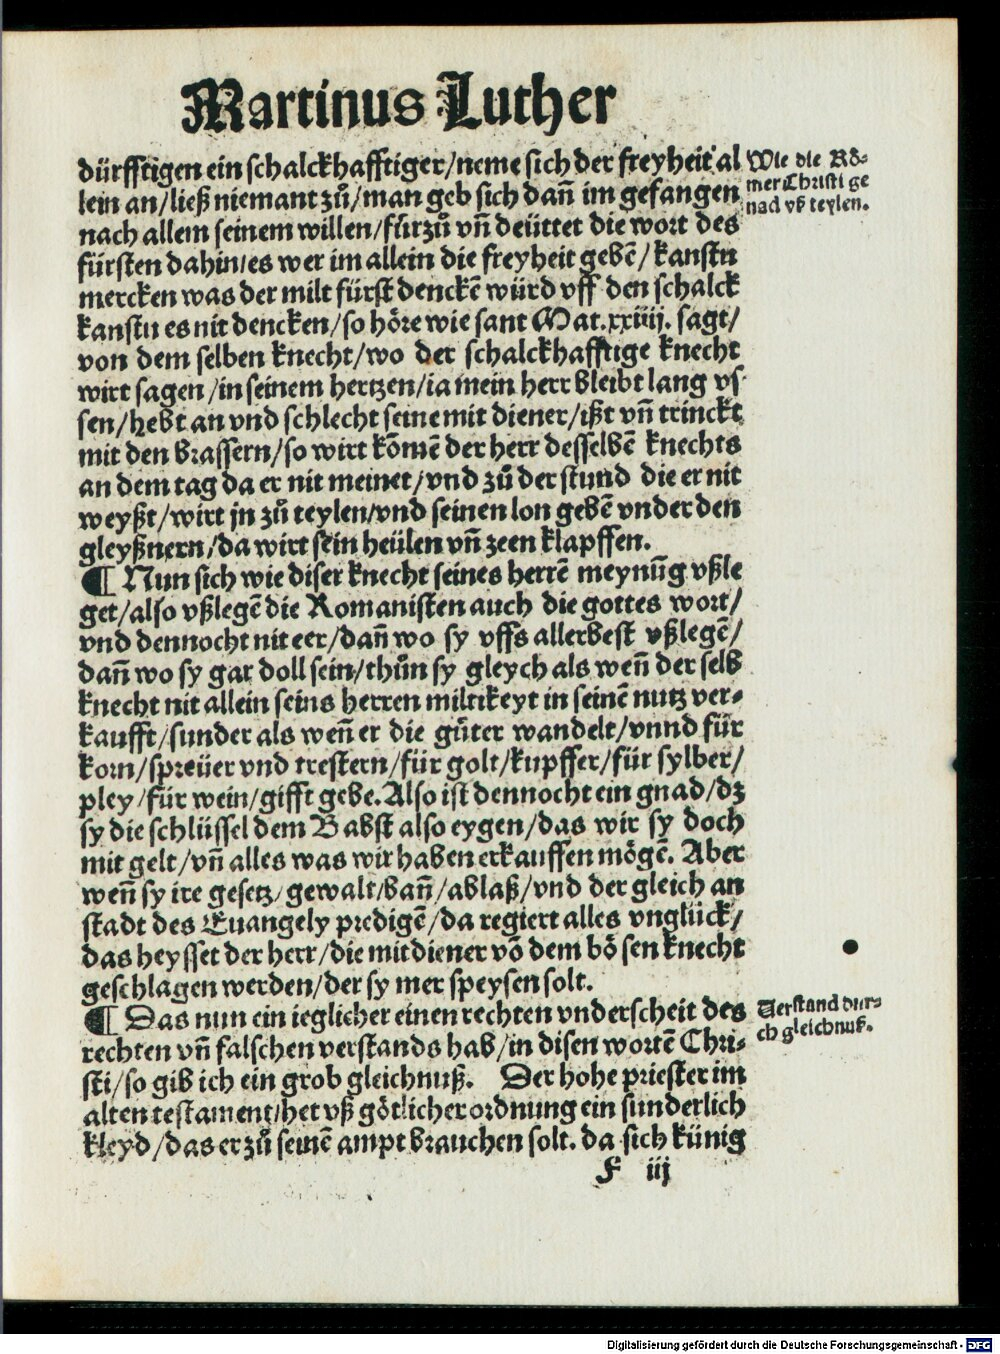 Martinus Luther
dürfftigen ein schalckhafftiger/neme sich der freyheit al
lein an/ließ niemant zů/man geb sich dañ im gefangen
nach allem seinem willen/fürzů vñ deüttet die wort des
fürsten dahin/es wer im allein die freyheit gebẽ/kanstu
mercken was der milt fürst denckẽ würd vff den schalck
kanstu es nit dencken/so höre wie sant Mat.xxiiij. sagt/
von dem selben knecht/wo der schalckhafftige knecht
wirt sagen/in seinem hertzen/ia mein herr bleibt lang vs
sen/hebt an vnd schlecht seine mit diener/ißt vñ trinckt
mit den brassern/so wirt kõmẽ der herr desselbẽ knechts
an dem tag da er nit meinet/vnd zů der stund die er nit
weyßt/wirt jn zů teylen/vnd seinen lon gebẽ vnder den
gleyßnern/da wirt sein heülen vñ zeen klapffen.
¶ Nun sich wie diser knecht seines herrẽ meynũg vßle
get/also vßlegẽ die Romanisten auch die gottes wort/
vnd dennocht nit eer/dañ wo sy vffs allerbest vßlegẽ/
dañ wo sy gar doll sein/thůn sy gleych als weñ der selb
knecht nit allein seins herren miltikeyt in seinẽ nutz ver-
kaufft/sunder als weñ er die gůter wandelt/vnnd für
korn/spreüer vnd trestern/für golt/kupffer/für sylber/
pley/für wein/gifft gebe. Also ist dennocht ein gnad/dz
sy die schlüssel dem Babst also eygen/das wir sy doch
mit gelt/vñ alles was wir haben erkauffen mögẽ. Aber
weñ sy ire gesetz/gewalt/bañ/ablaß/vnd der gleich an
stadt des Euangely predigẽ/da regiert alles vnglück/
das heysset der herr/die mitdiener võ dem bösen knecht
geschlagen werden/der sy mer speysen solt.
¶ Das nun ein ieglicher einen rechten vnderscheit des
rechten vñ falschen verstands hab/in disen wortẽ Chri-
sti/so gib ich ein grob gleichnuß. Der hohe priester im
alten testament/het vß götlicher ordnung ein sunderlich
kleyd/das er zů seinẽ ampt brauchen solt. da sich künig
F iij
Wie die Rö-
mer Christi ge
nad vß teylen.
Verstand dur-
ch gleichnuß.
Digitalisierung gefördert durch die Deutsche Forschungsgemeinschaft - DFG